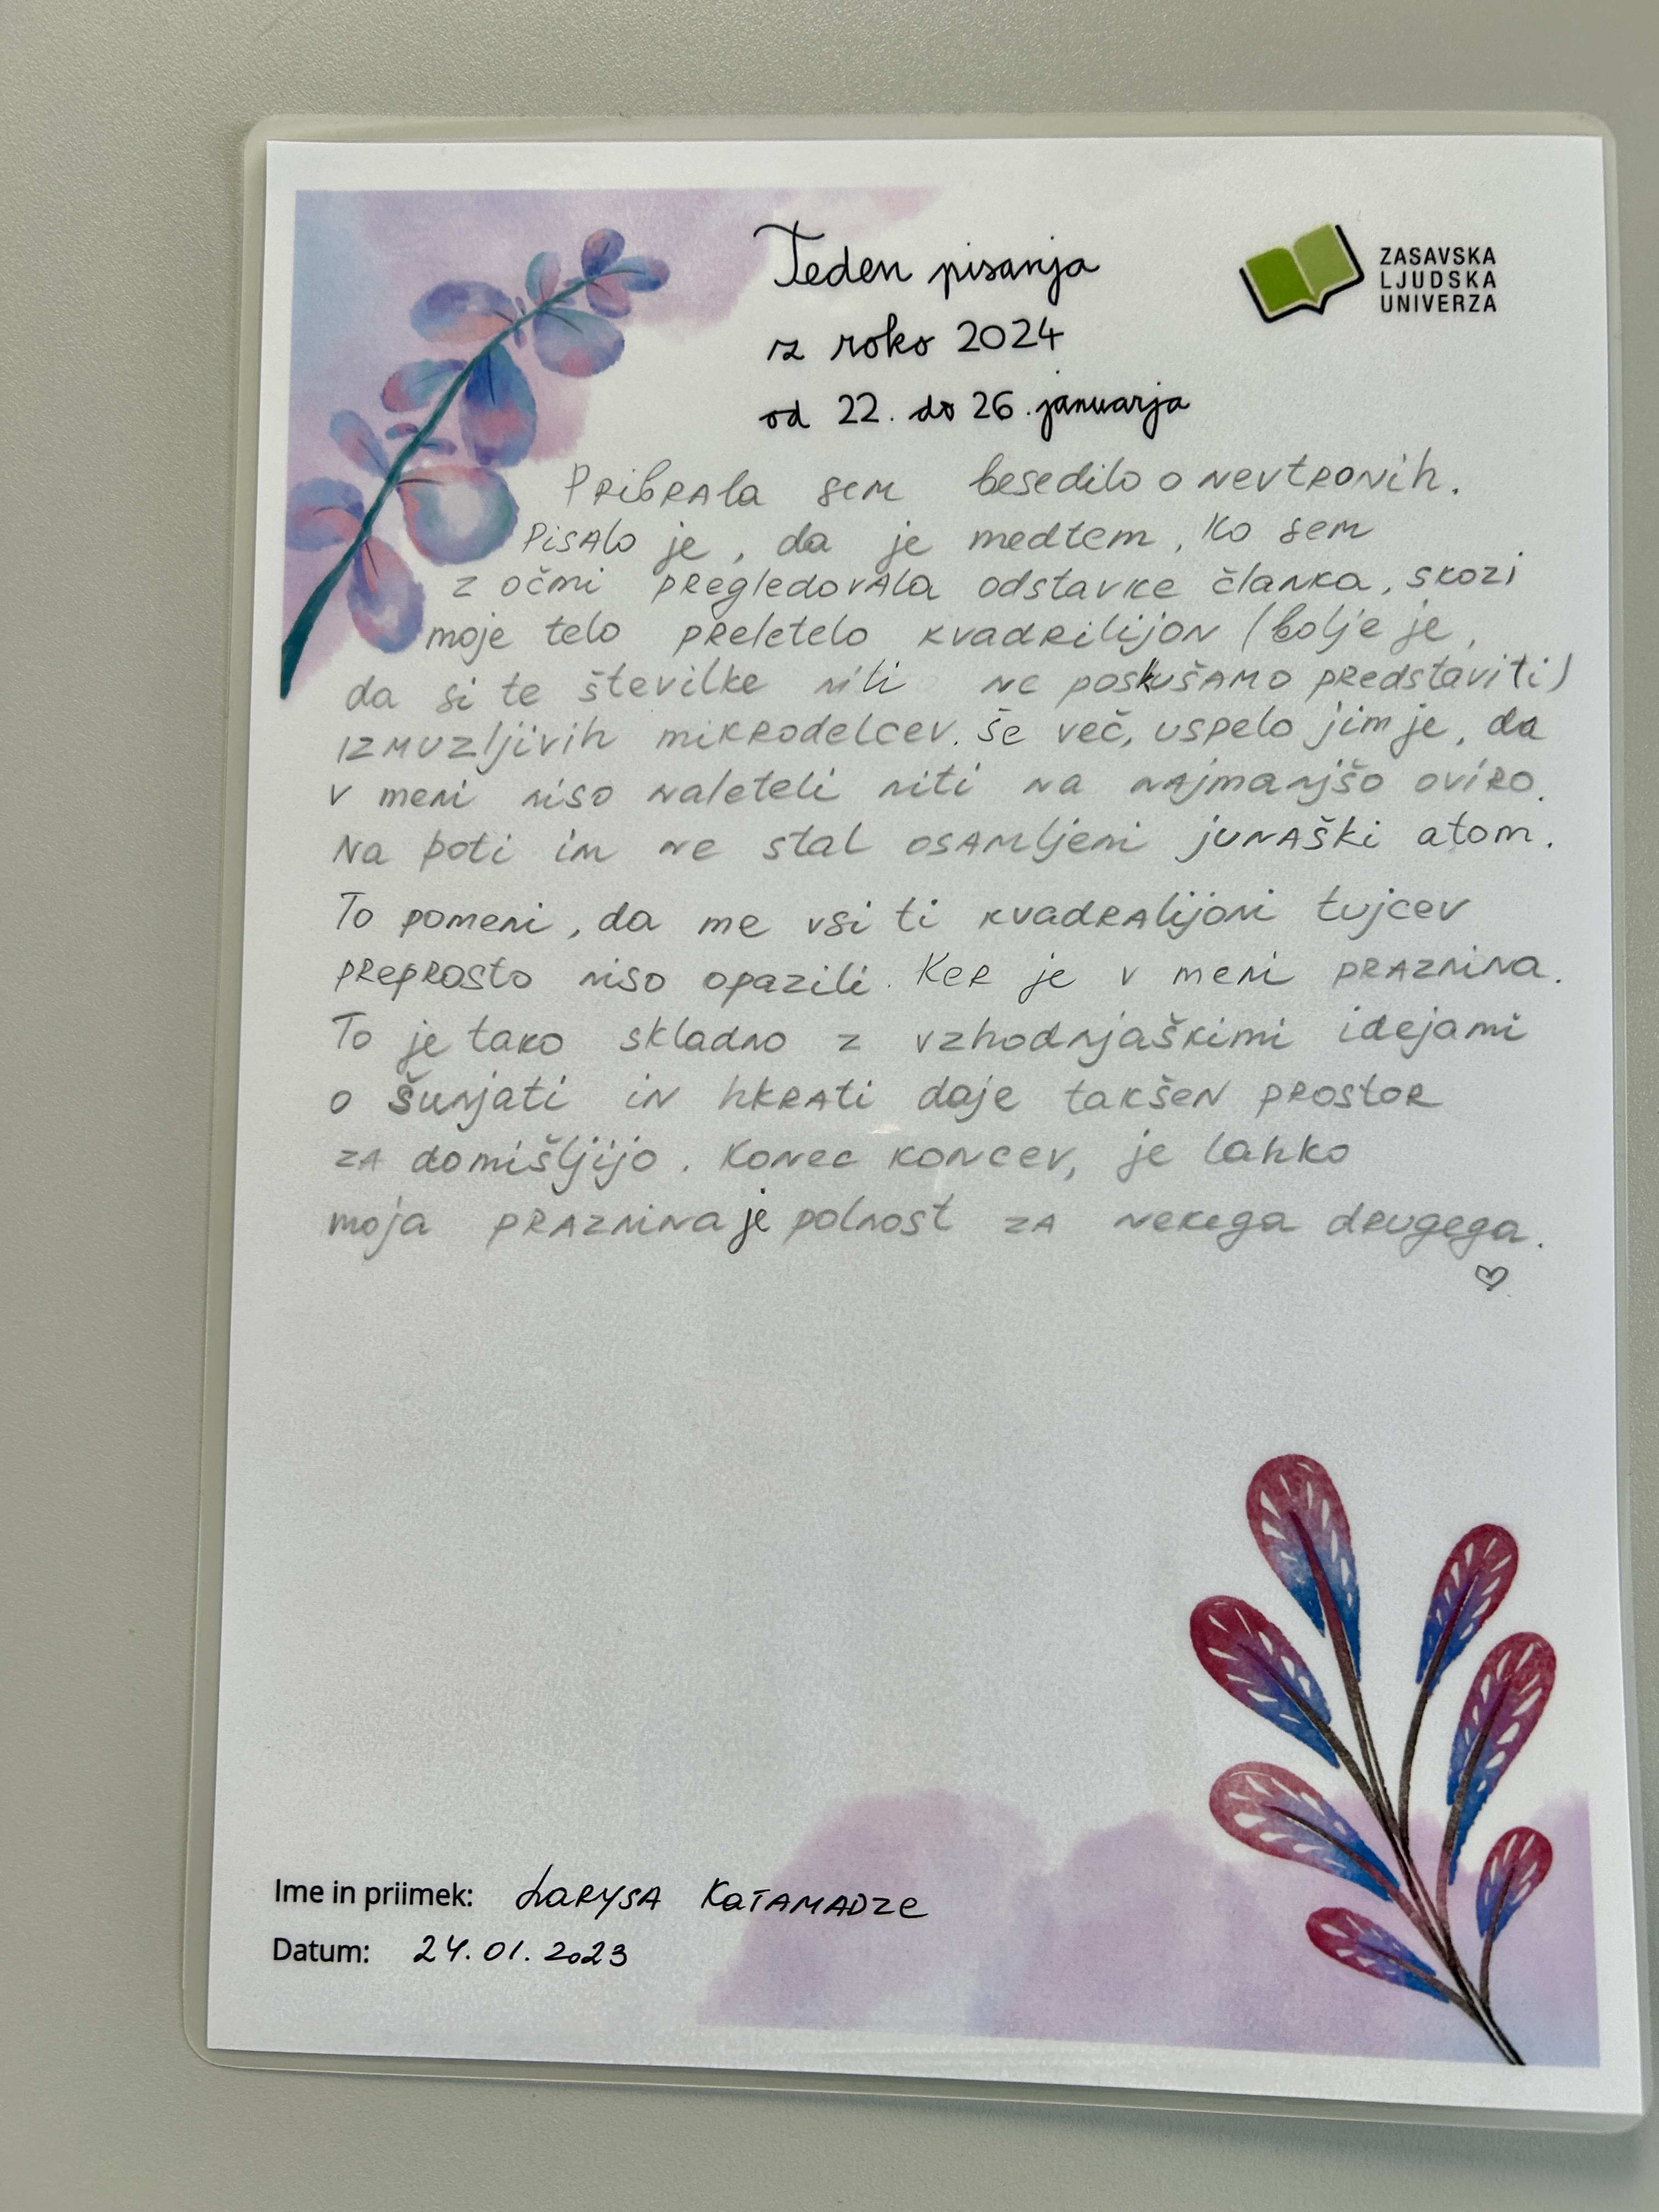 Teden pisanja
z roko 2024
od 22. do 26. januarja
ZASAVSKA
LJUDSKA
UNIVERZA
Pribrala sem besedilo o nevtronih.
Pisalo je, da je medtem, ko sem
z očmi pregledovala odstavke članka, skozi
moje telo preletelo kvadrilijon (bolje je,
da si te številke niti ne poskušamo predstaviti)
izmuzljivih mikrodelcev. Še več, uspelo jim je, da
v meni niso naleteli niti na najmanjšo oviro.
Na poti im ne stal osamljeni junaški atom.
To pomeni, da me vsi ti kvadralijoni tujcev
preprosto niso opazili. Ker je v meni praznina.
To je tako skladno z vzhodnjaškimi idejami
o šunjati in hkrati daje takšen prostor
za domišljijo. Konec koncev, je lahko
moja praznina je polnost za nekega drugega.
♡
Ime in priimek: Larysa Katamadze
Datum: 24.01.2023